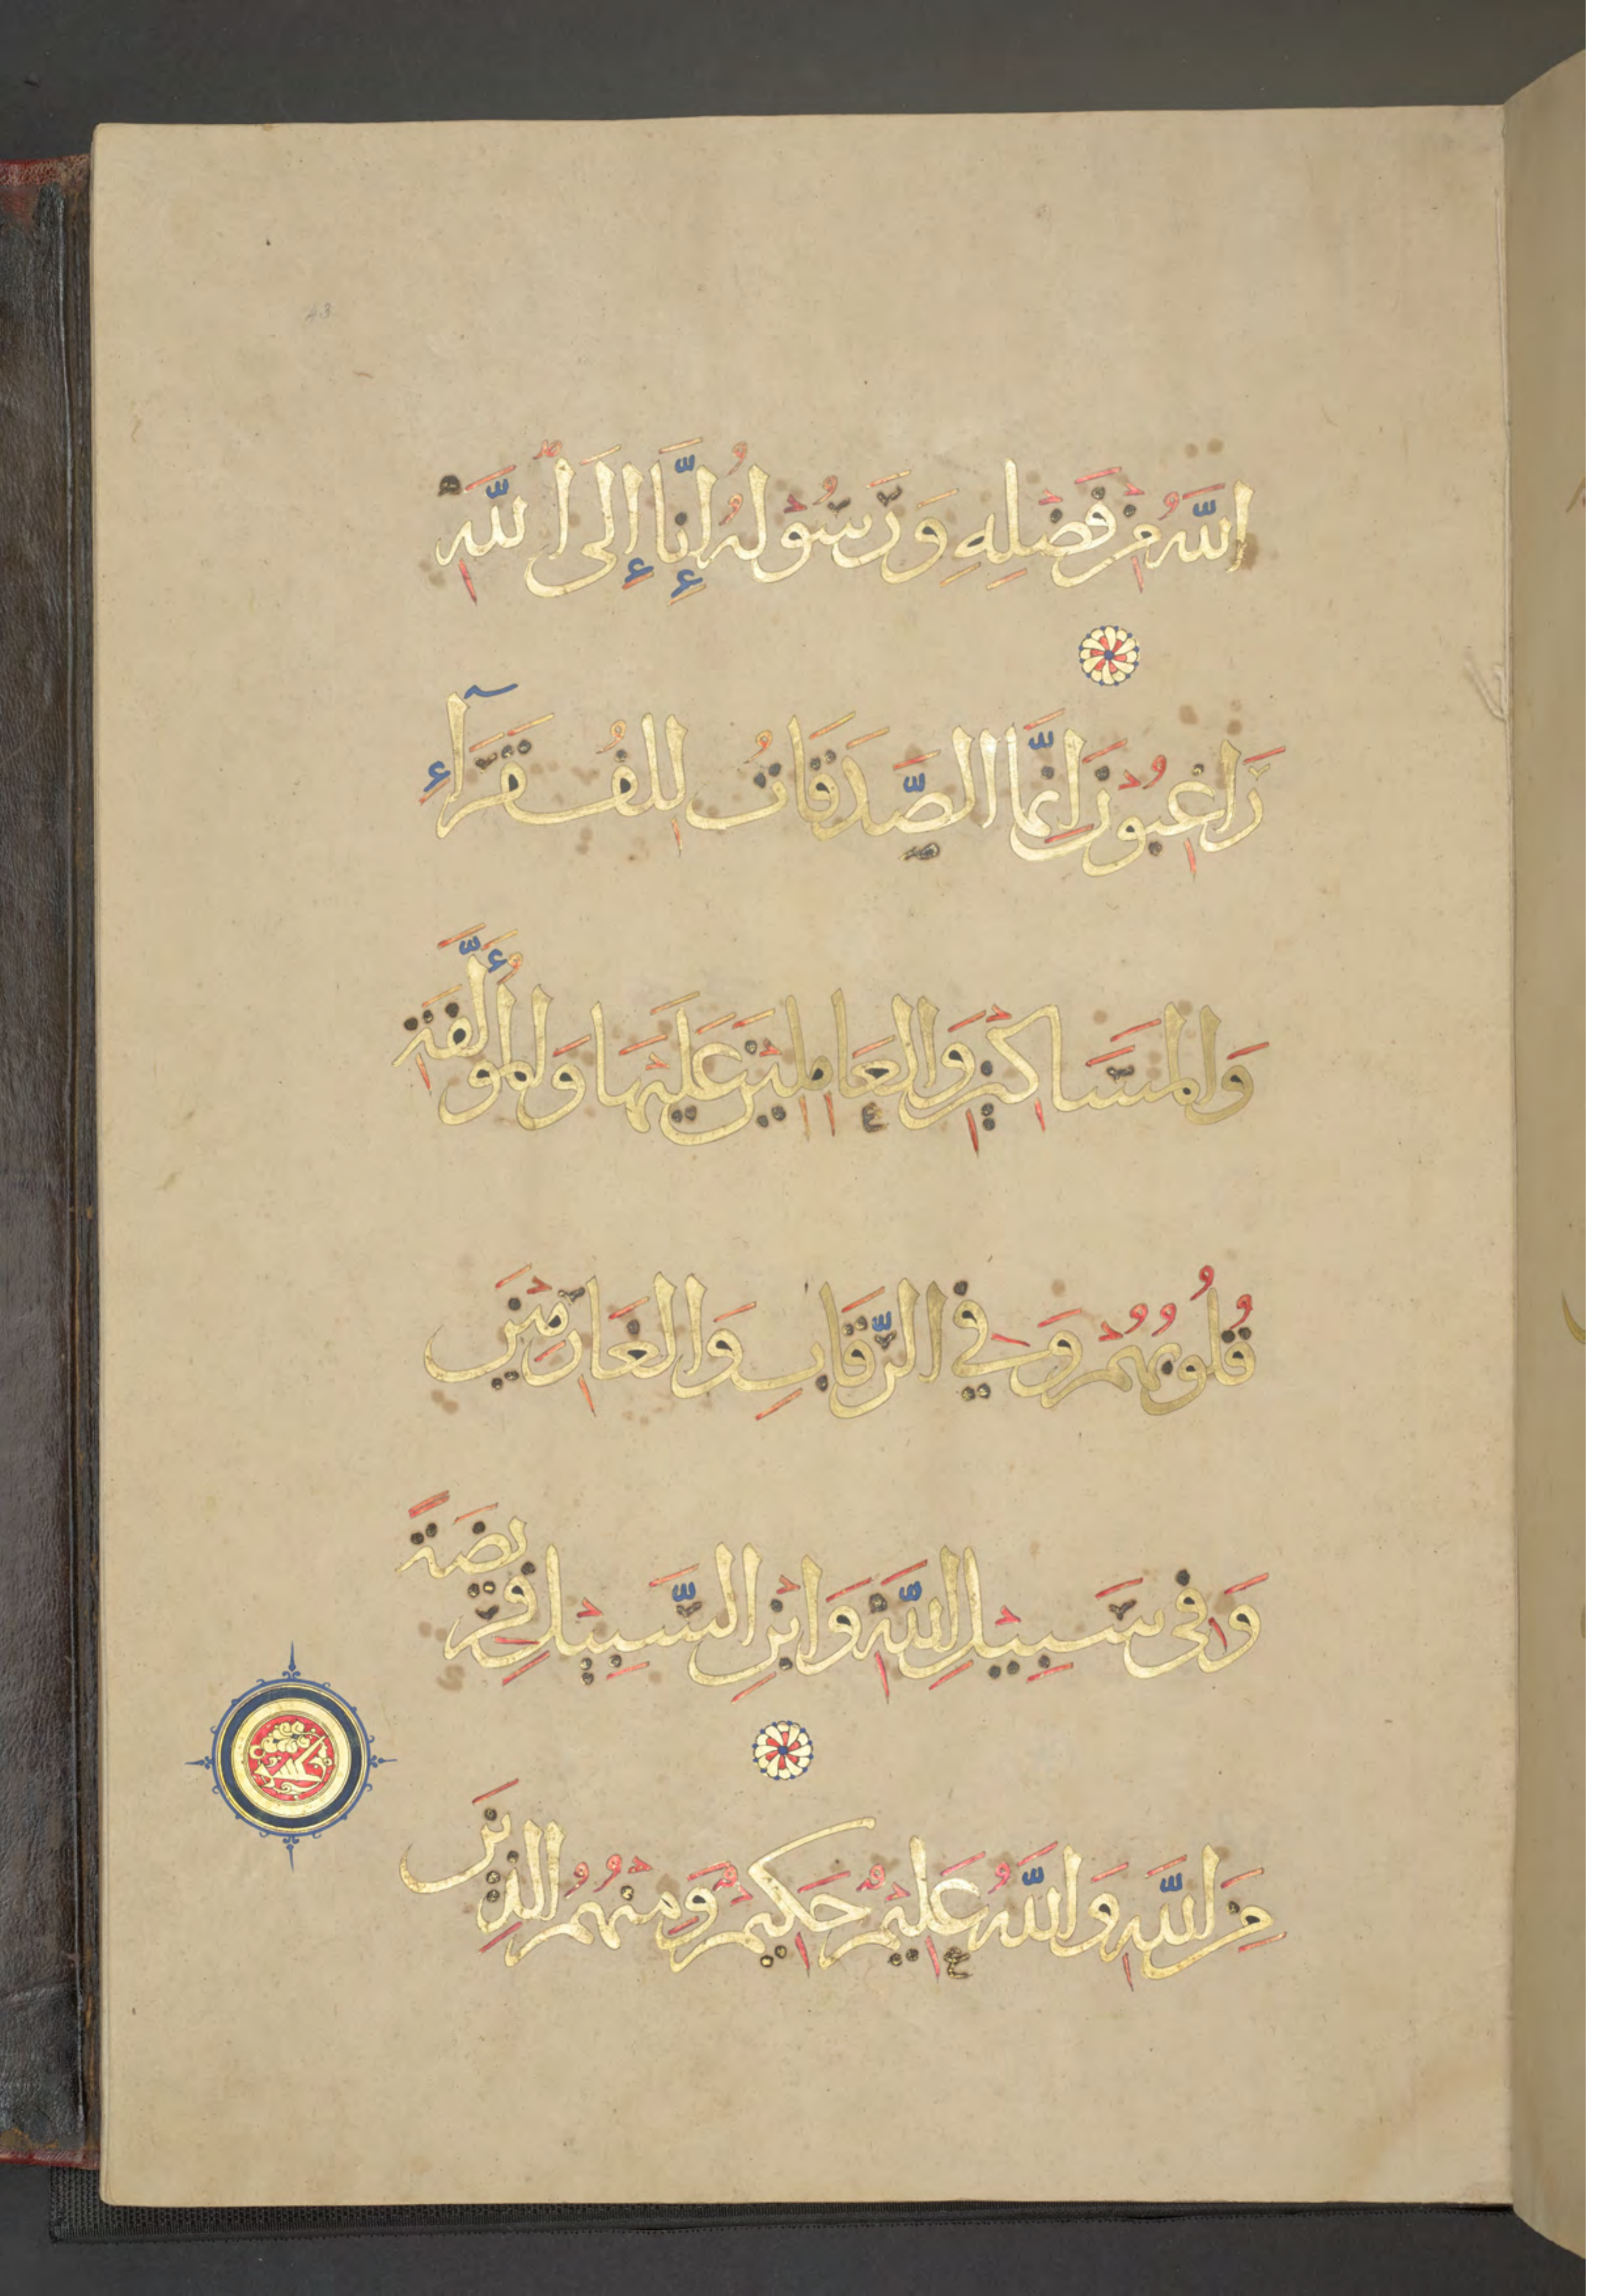 اللَّهُ مِنْ فَضْلِهِ وَرَسُوْلُهُ إِنَّا إِلَى اللَّهِ
رَاغِبُوْنَ اِنَّمَا الصَّدَقَاتُ لِلْفُقَرَآءِ
وَالْمَسَاكِيْنِ وَالْعَامِلِيْنَ عَلَيْهَا وَالْمُؤَلَّفَةِ
قُلُوبُهُمْ وَفِي الرِّقَابِ وَالْغَارِمِيْنَ
وَفِى سَبِيْلِ اللَّهِ وَابْنِ السَّبِيْلِ فَرِيْضَةً
مِنَ اللَّهِ وَاللَّهُ عَلِيْمٌ حَكِيْمٌ وَمِنْهُمُ الَّذِيْنَ
43